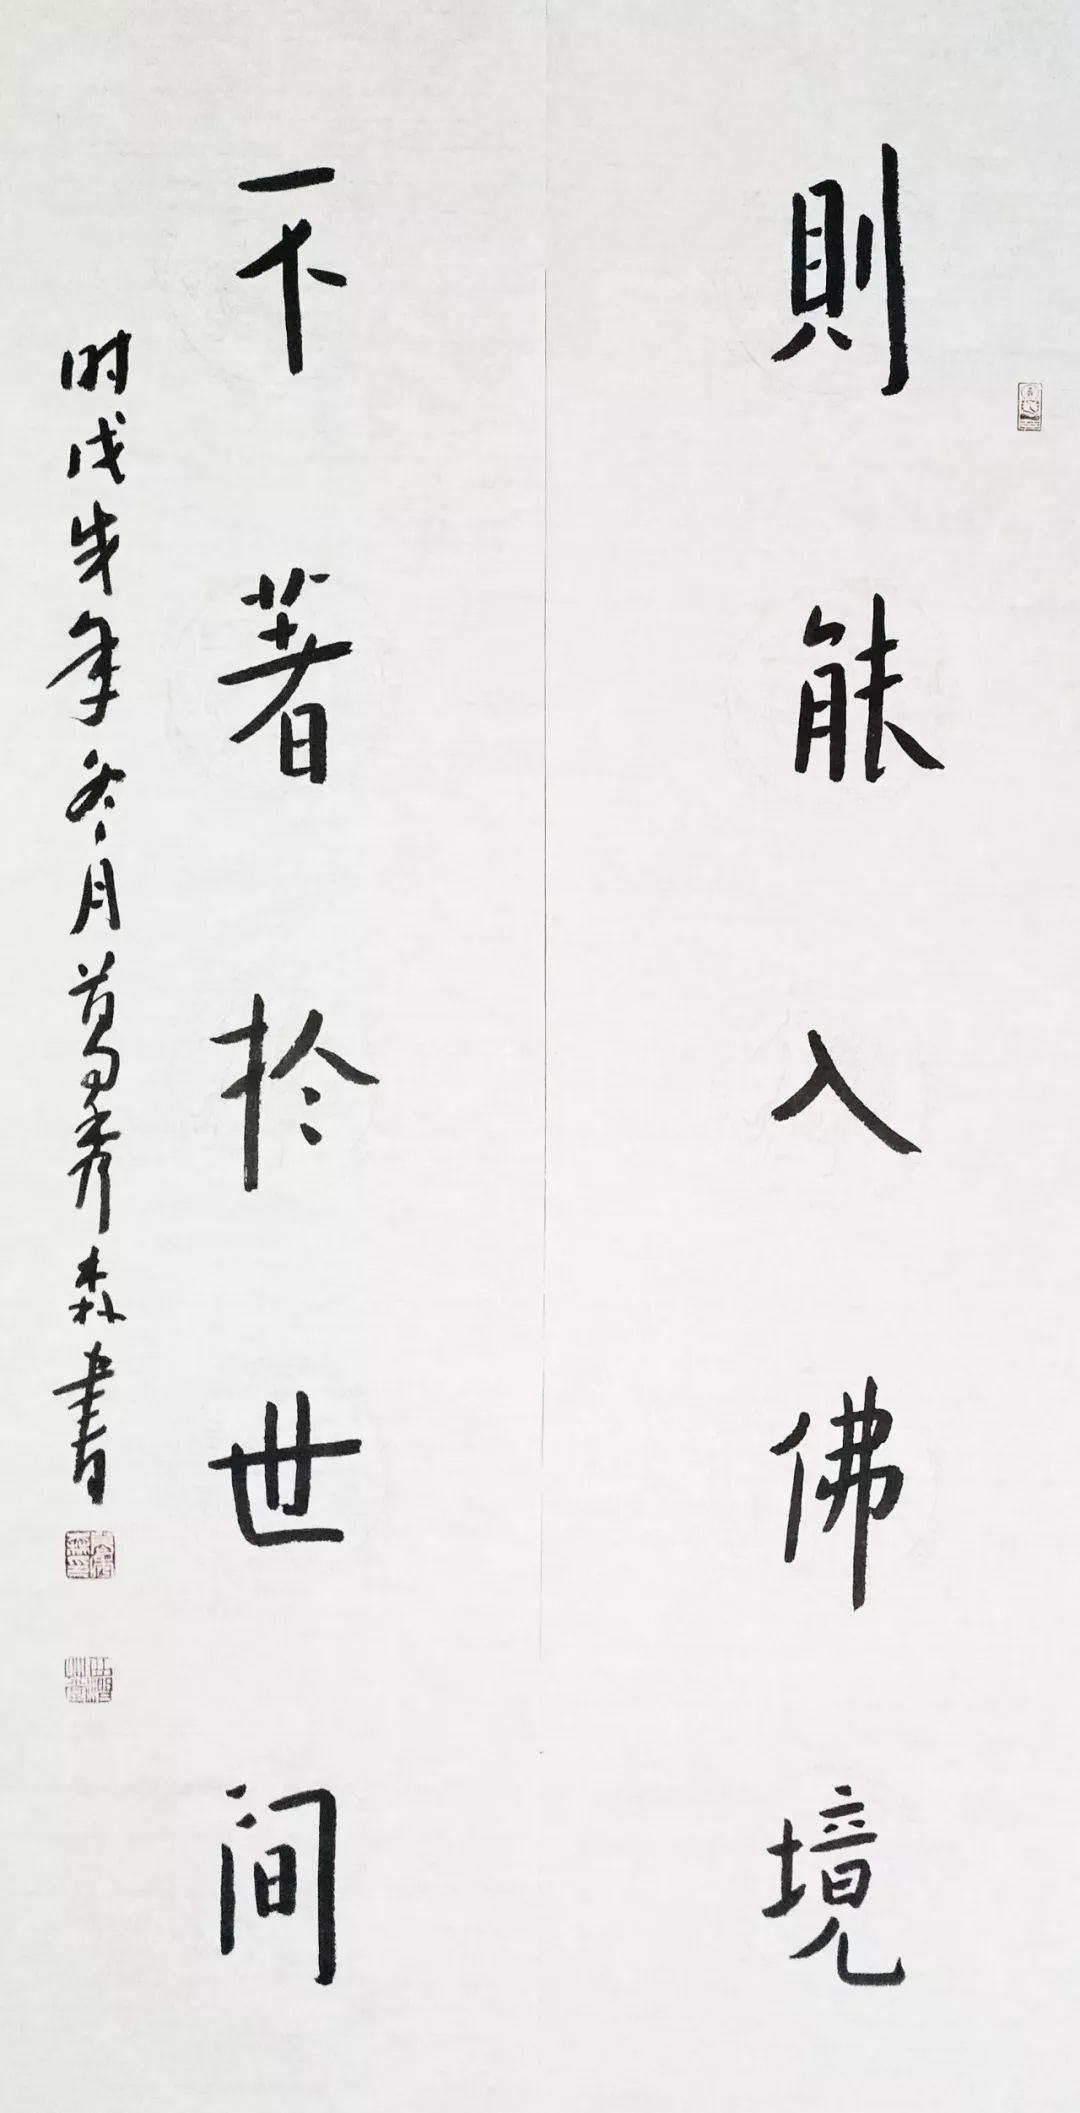 則能入佛境
不著於世间
时戊戌年冬月葛秀森書